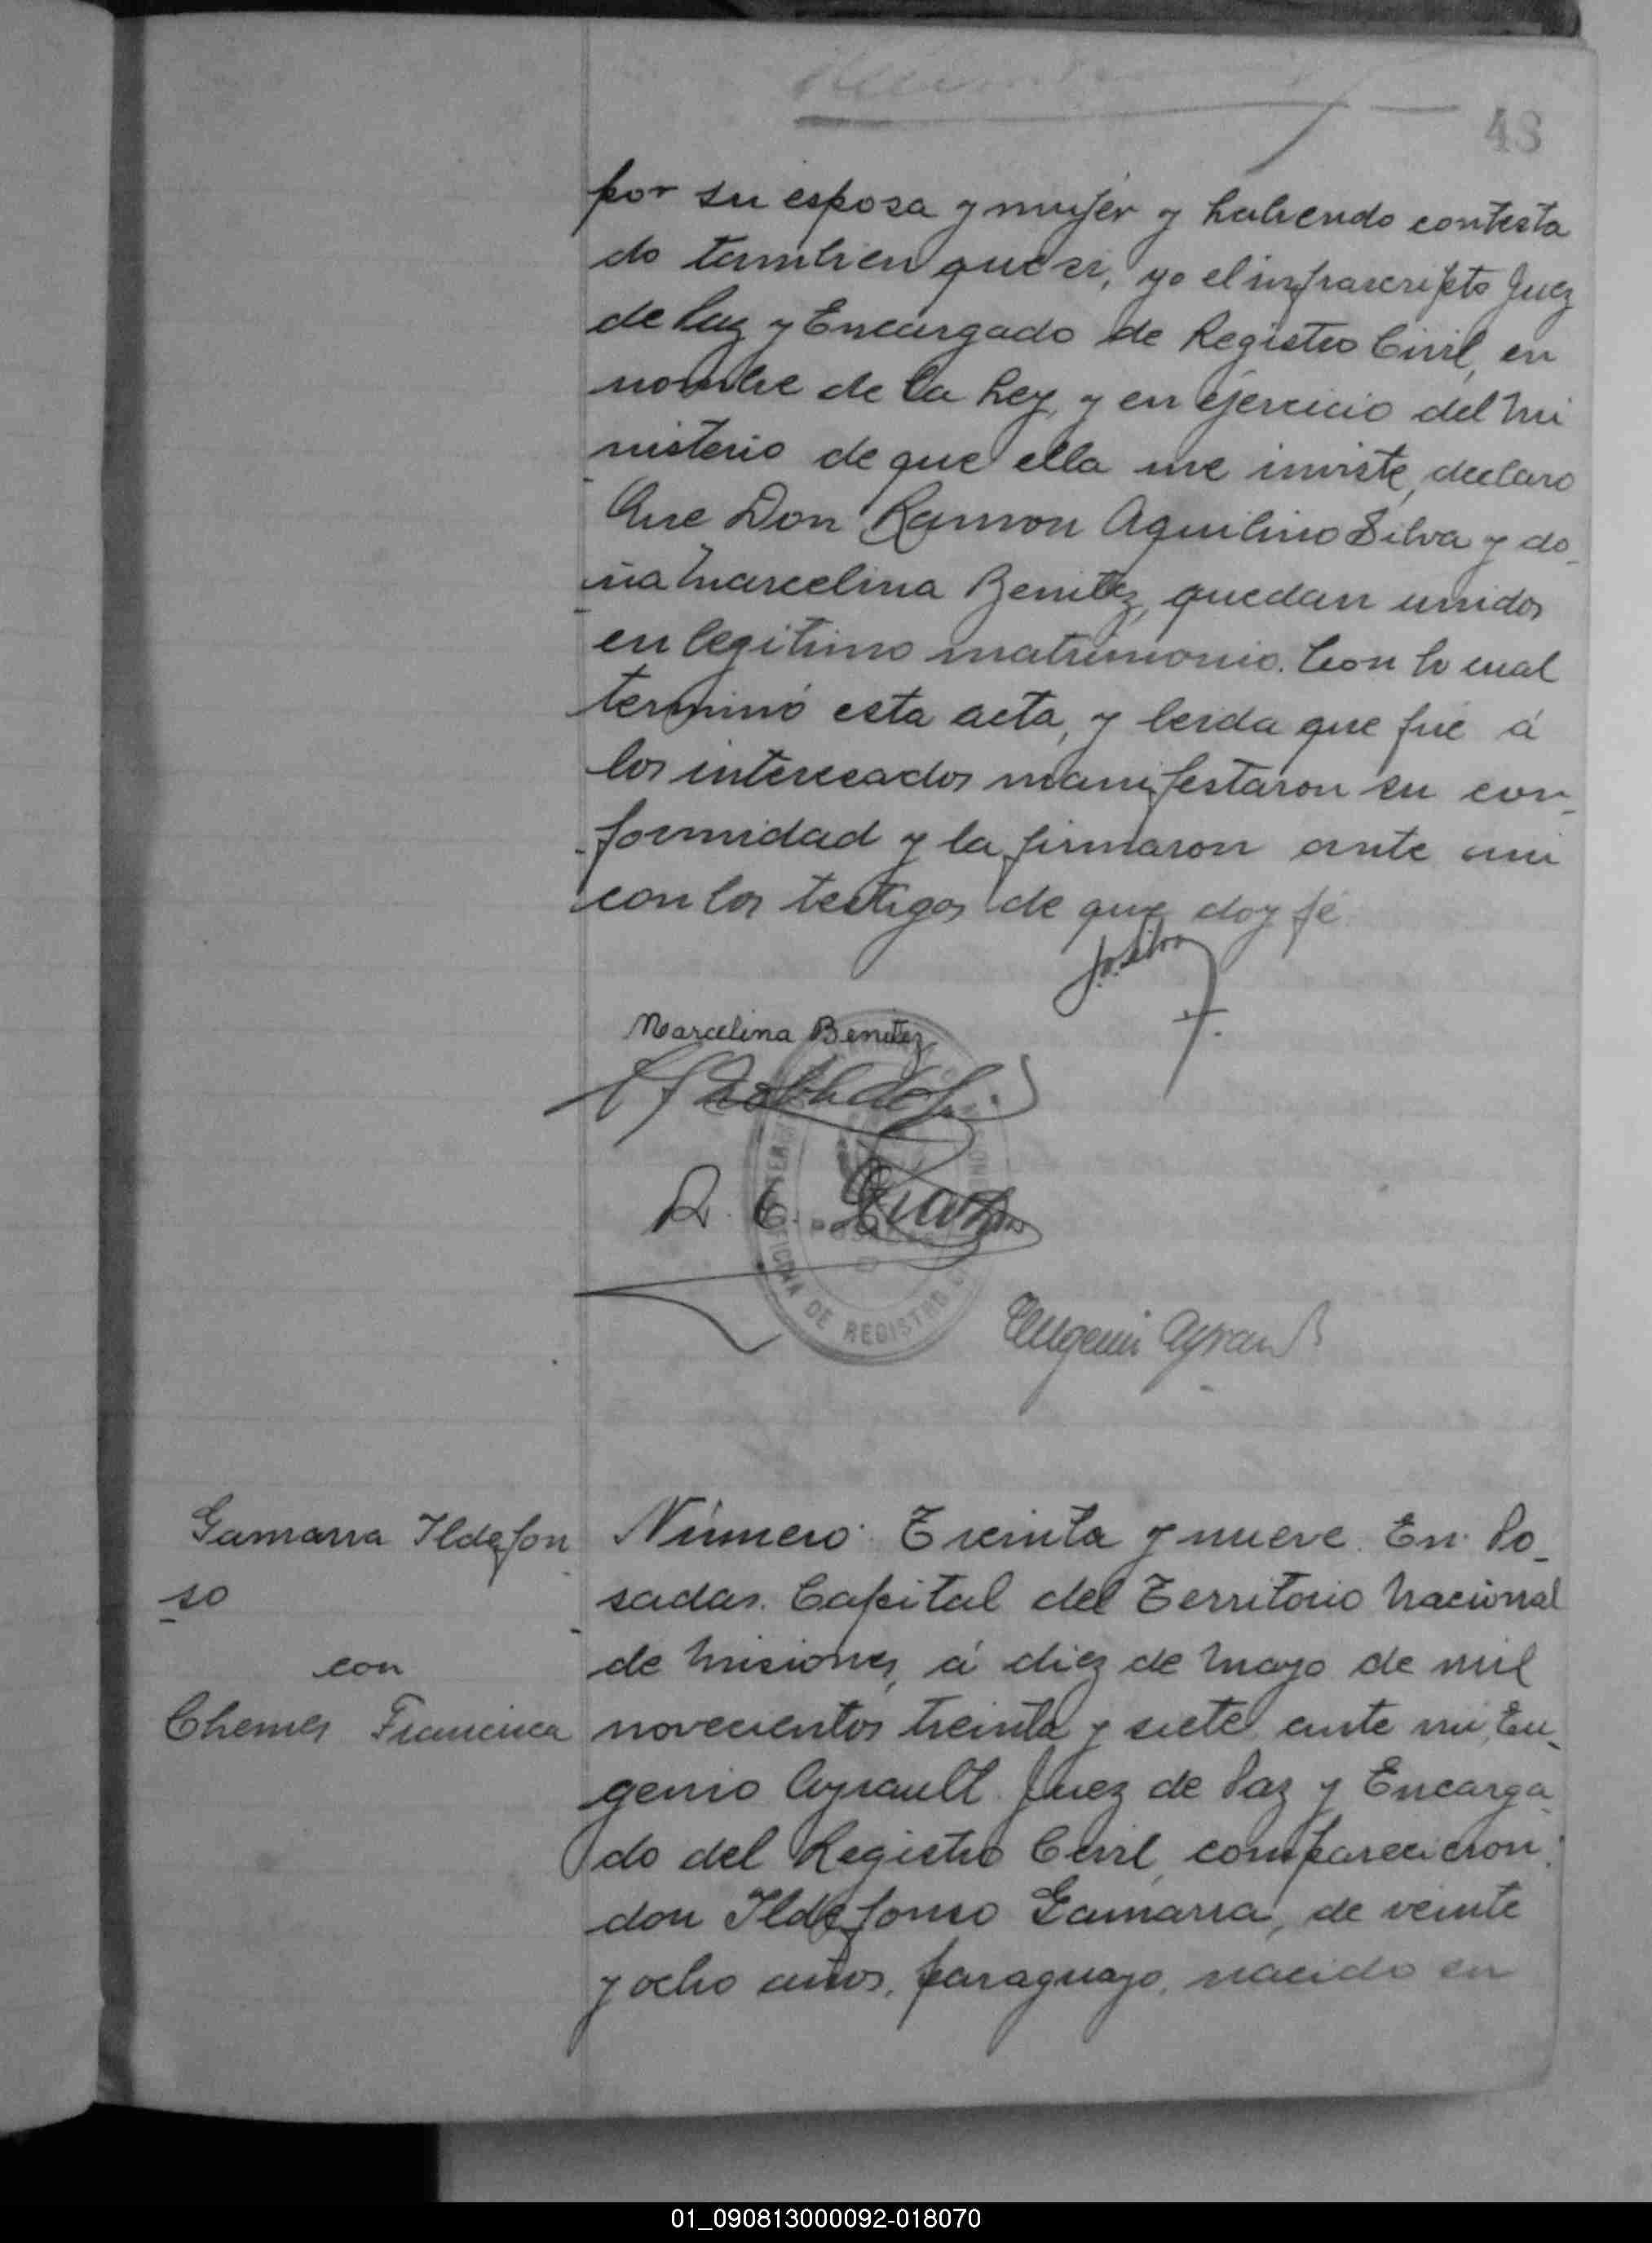 43
por su esposa y mujer y habiendo contesta
do tambien que si, yo el infrascripto Juez
de Paz y Encargado de Registro Civil, en
nombre de la Ley, y en ejercicio del Mi
nisterio de que ella me inviste, declaro
Que Don Ramon Aquilino Silva y do_
ña Marcelina Benitez, quedan unidos
en legitimo matrimonio. Con lo cual
terminó esta acta, y leida que fué á
los interesados manifestaron su con_
formidad y la firmaron ante mi
con los testigos de que doy fé
Marcelina Benitez
R. C.
OFICINA DE REGISTRO
Eugenio Ayrault
Gamarra Ildefon
so
con
Chemes Francisca
Número: Treinta y nueve. En Po_
sadas. Capital del Territorio Nacional
de Misiones, á diez de Mayo de mil
novecientos treinta y siete, ante mi, Eu_
genio Ayrault. Juez de Paz y Encarga_
do del Registro Civil, comparecieron:
don Ildefonso Gamarra, de veinte
y ocho años, paraguayo, nacido en
01_090813000092-018070